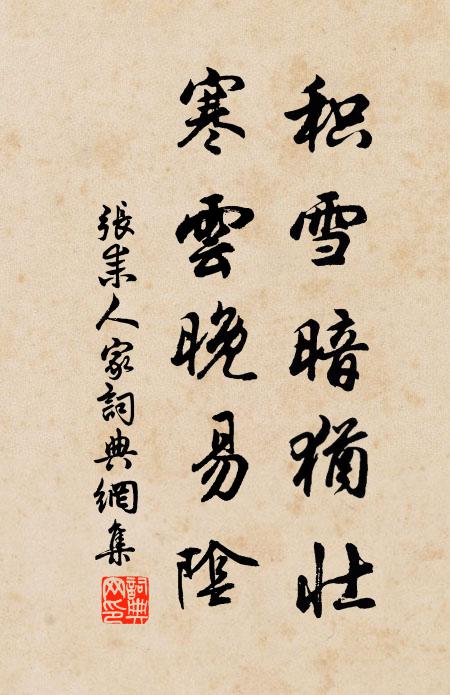 积雪暗犹壮
寒雲晚易陰
張耒人家詞典網集
詞典
网印